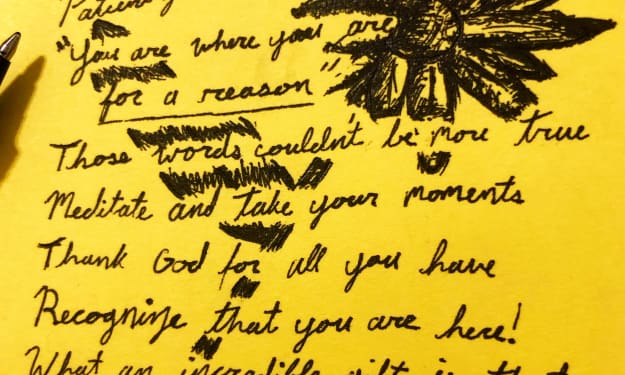 "You are where you are
for a reason"
Those words couldn't be more true
Meditate and take your moments
Thank God for all you have
Recognize that you are here!
What an incredible gift is that